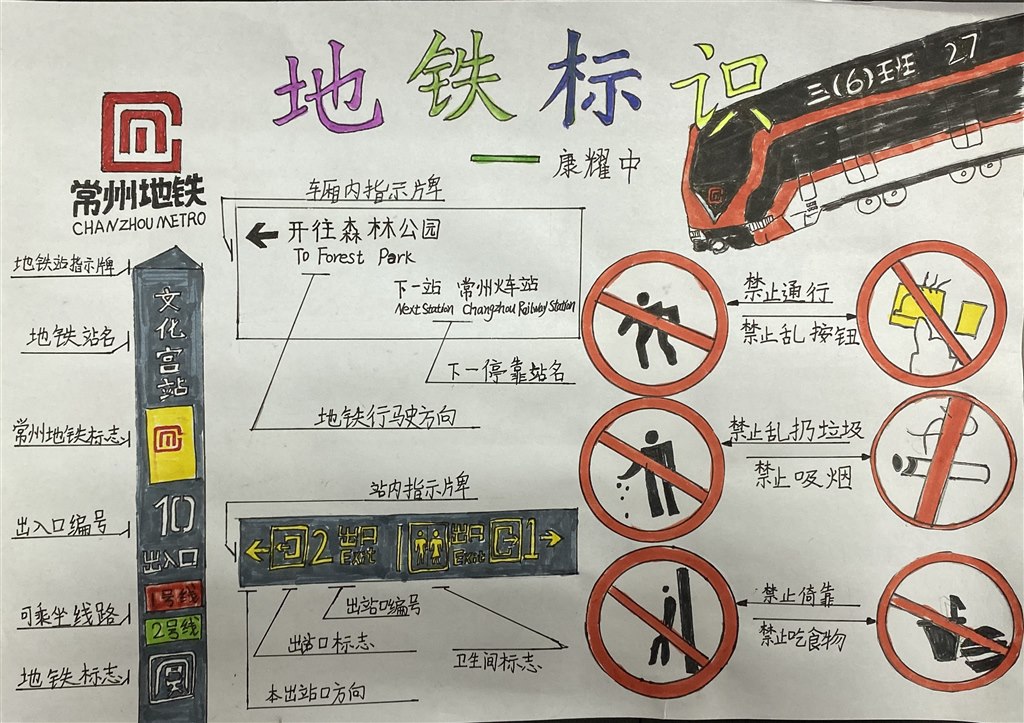 地铁标识
康耀中
三(6)班 27
常州地铁
CHANZHOU METRO
地铁站指示牌
地铁站名
常州地铁标志
出入口编号
可乘坐线路
地铁标志
文化宫站
10
出入口
1号线
2号线
车厢内指示牌
开往森林公园
To Forest Park
下一站 常州火车站
Next Station Changzhou Railway Station
下一停靠站名
地铁行驶方向
站内指示牌
2 出口 出口 1
Exit Exit
出站口编号
出站口标志
卫生间标志
本出站口方向
禁止通行
禁止乱按钮
禁止乱扔垃圾
禁止吸烟
禁止倚靠
禁止吃食物